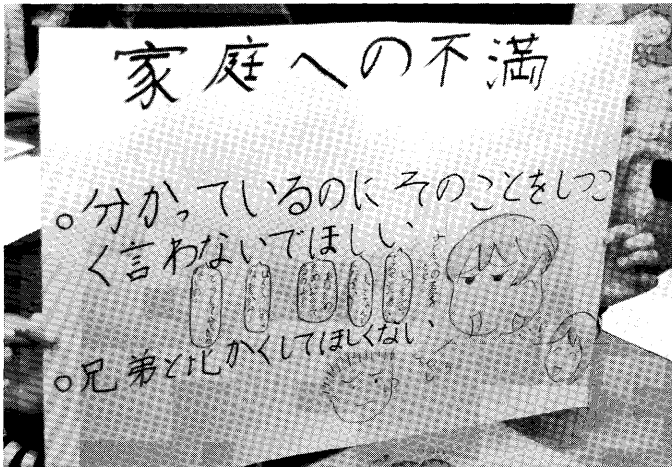 家庭への不満
。分かっているのにそのことをしつこ
く言わないでほしい、
。兄弟と比かくしてほしくない、